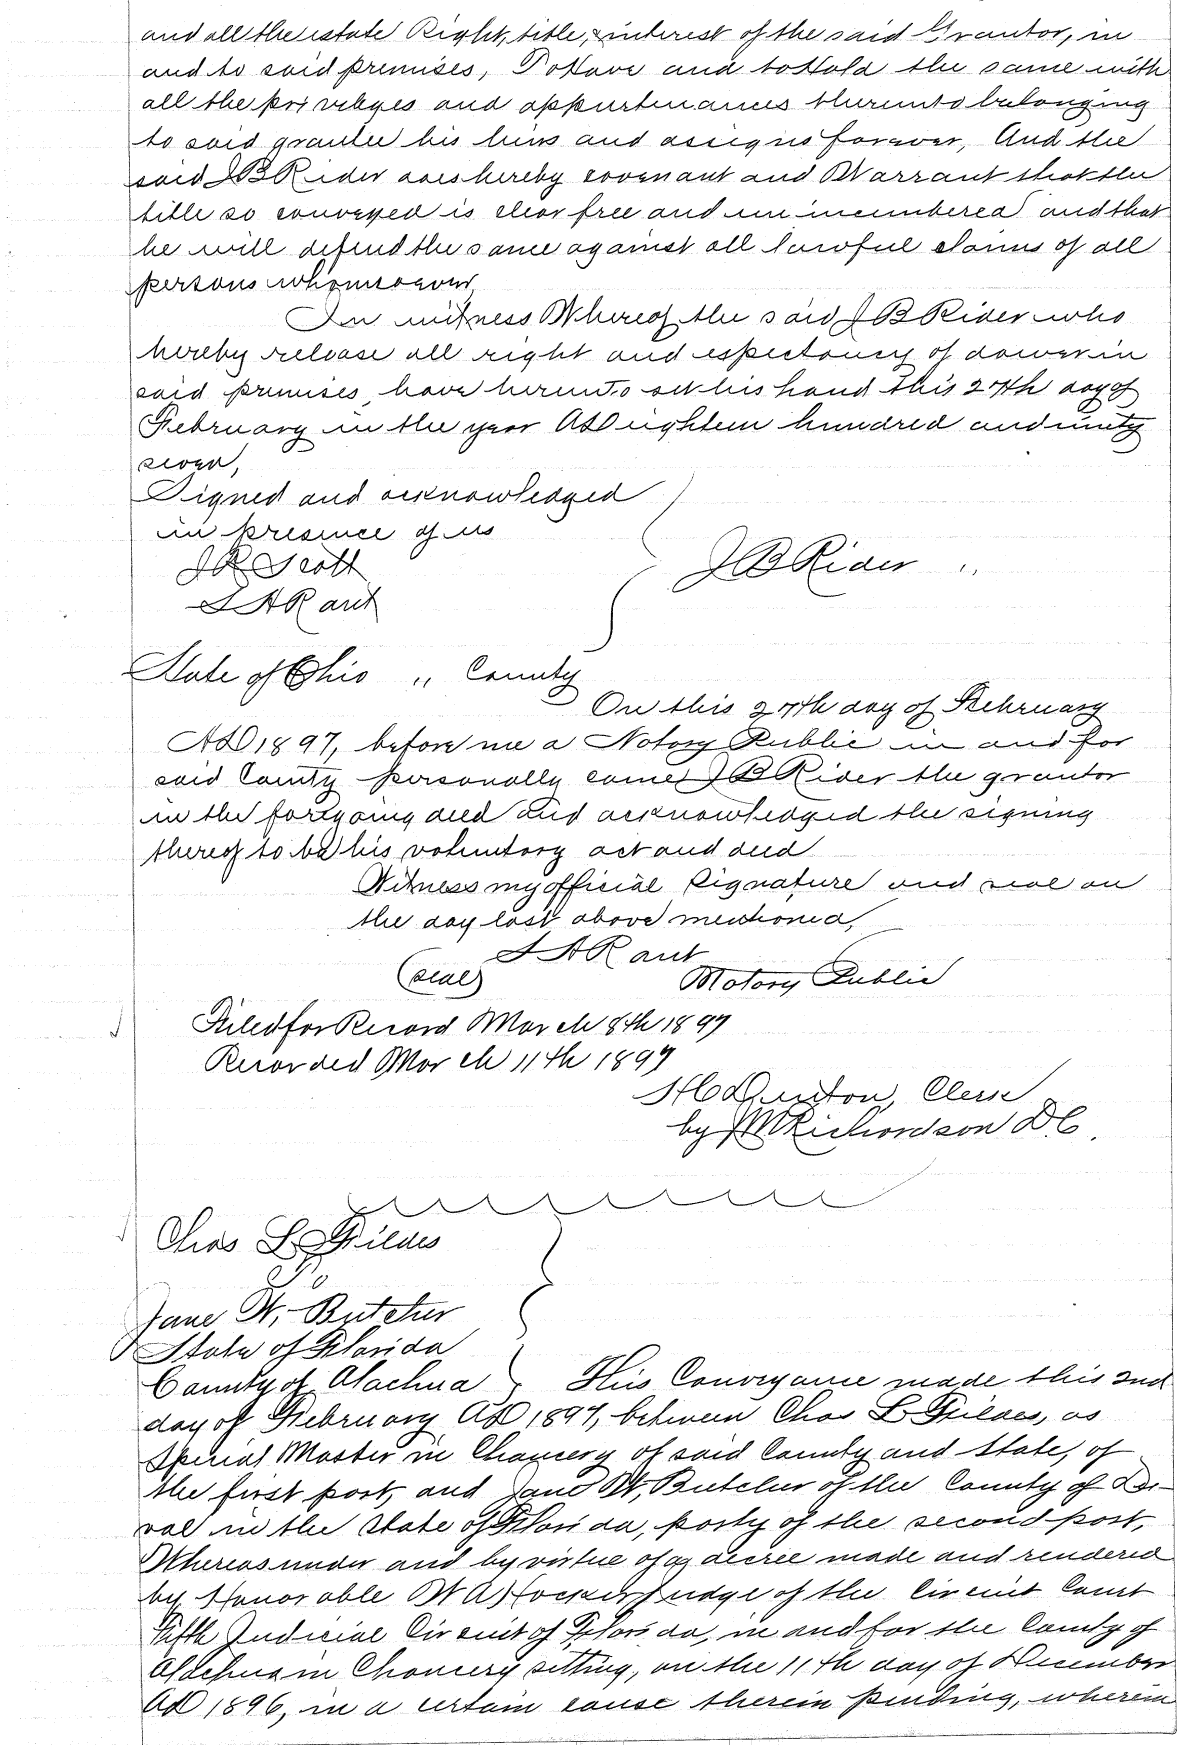 and all the estate Right, title, & interest of the said Grantor, in
and to said premises, To Have and to Hold the same with
all the privileges and appurtenances thereunto belonging
to said grantee his heirs and assigns forever, And the
said J B Rider does hereby covenant and Warrant that the
title so conveyed is clear free and unincumbered and that
he will defend the same against all lawful claims of all
persons whomsoever,
In witness Whereof the said J B Rider who
hereby release all right and expectancy of dower in
said premises, have hereunto set his hand this 27th day of
February in the year AD eighteen hundred and ninety
seven,
Signed and acknowledged
in presence of us
J R Scott
J B Rider "
S A Rant
State of Ohio " County
On this 27th day of February
AD 1897, before me a Notary Public in and for
said County personally came J B Rider the grantor
in the foregoing deed and acknowledged the signing
thereof to be his voluntary act and deed
Witness my official Signature and seal on
the day last above mentioned,
S A Rant
(seal) Notary Public
Filed for Record March 8th 1897
Recorded March 11th 1897
H C Denton, Clerk
by M Richardson D C.
Chas L Fildes
To
Jane W. Butcher
State of Florida
County of Alachua This Conveyance made this 2nd
day of February AD 1897, between Chas L Fildes, as
Special Master in Chancery of said County and State, of
the first part, and Jane W. Butcher of the County of Du-
val in the State of Florida, party of the second part,
Whereas under and by virtue of a decree made and rendered
by Honorable W A Hocker Judge of the Circuit Court
Fifth Judicial Circuit of Florida, in and for the County of
Alachua in Chancery sitting, on the 11th day of December
AD 1896, in a certain cause therein pending, wherein